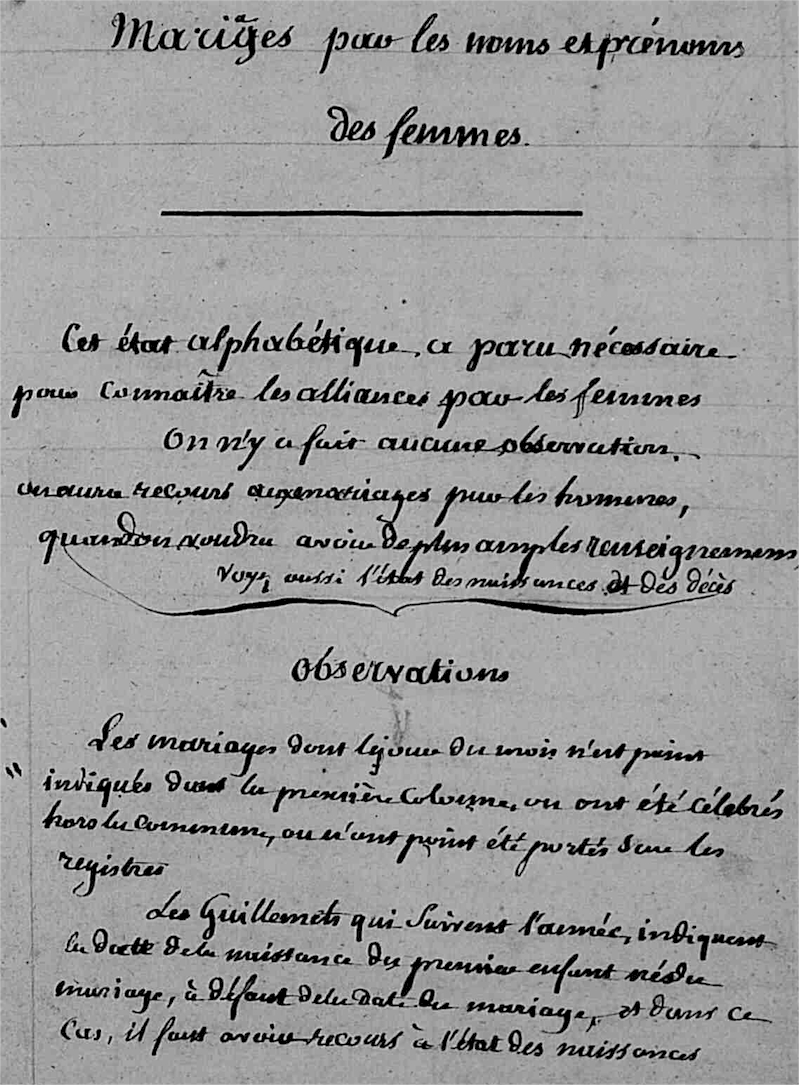 Mariages par les noms et prénoms
des femmes.
Cet état alphabétique, a paru nécessaire
pour connaître les alliances par les femmes
On n'y a fait aucune observation.
on aura recours aux mariages par les hommes,
quand on voudra avoir de plus amples renseignemens
Voyez aussi l'état des naissances et des décès
Observations
Les mariages dont le jour du mois n'est point
indiqués dans la première Colonne, ou ont été célébrés
hors la commune, ou n'ont point été portés sur les
registres
"
Les Guillemets qui suivent l'année, indiquent
la date de la naissance du premier enfant né du
mariage, à défaut de la date du mariage, et dans ce
Cas, il faut avoir recours à l'état des naissances